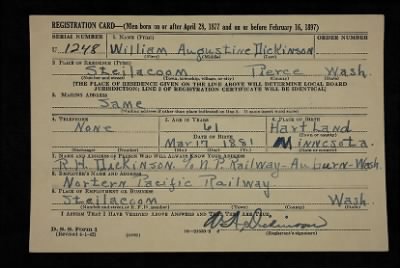 REGISTRATION CARD—(Men born on or after April 28, 1877 and on or before February 16, 1897)
SERIAL NUMBER 1. NAME (Print) ORDER NUMBER
U 1248 William Augustine Dickinson
(First) (Middle) (Last)
2. PLACE OF RESIDENCE (Print)
Steilacoom Pierce Wash.
(Number and street) (Town, township, village, or city) (County) (State)
[THE PLACE OF RESIDENCE GIVEN ON THE LINE ABOVE WILL DETERMINE LOCAL BOARD
JURISDICTION; LINE 2 OF REGISTRATION CERTIFICATE WILL BE IDENTICAL]
3. MAILING ADDRESS
Same
[Mailing address if other than place indicated on line 2. If same insert word same]
4. TELEPHONE 5. AGE IN YEARS 6. PLACE OF BIRTH
None 61 Hartland
DATE OF BIRTH (Town or county)
Mar 17 1881 Minnesota.
(Exchange) (Number) (Mo.) (Day) (Yr.) (State or country)
7. NAME AND ADDRESS OF PERSON WHO WILL ALWAYS KNOW YOUR ADDRESS
R.H. Dickinson. c/o N.P. Railway-Auburn-Wash.
8. EMPLOYER'S NAME AND ADDRESS
Nortern Pacific Railway.
9. PLACE OF EMPLOYMENT OR BUSINESS
Steilacoom Wash.
(Number and street or R. F. D. number) (Town) (County) (State)
I AFFIRM THAT I HAVE VERIFIED ABOVE ANSWERS AND THAT THEY ARE TRUE.
D. S. S. Form 1
(Revised 4-1-42) (over) W A Dickinson
(Registrant's signature)